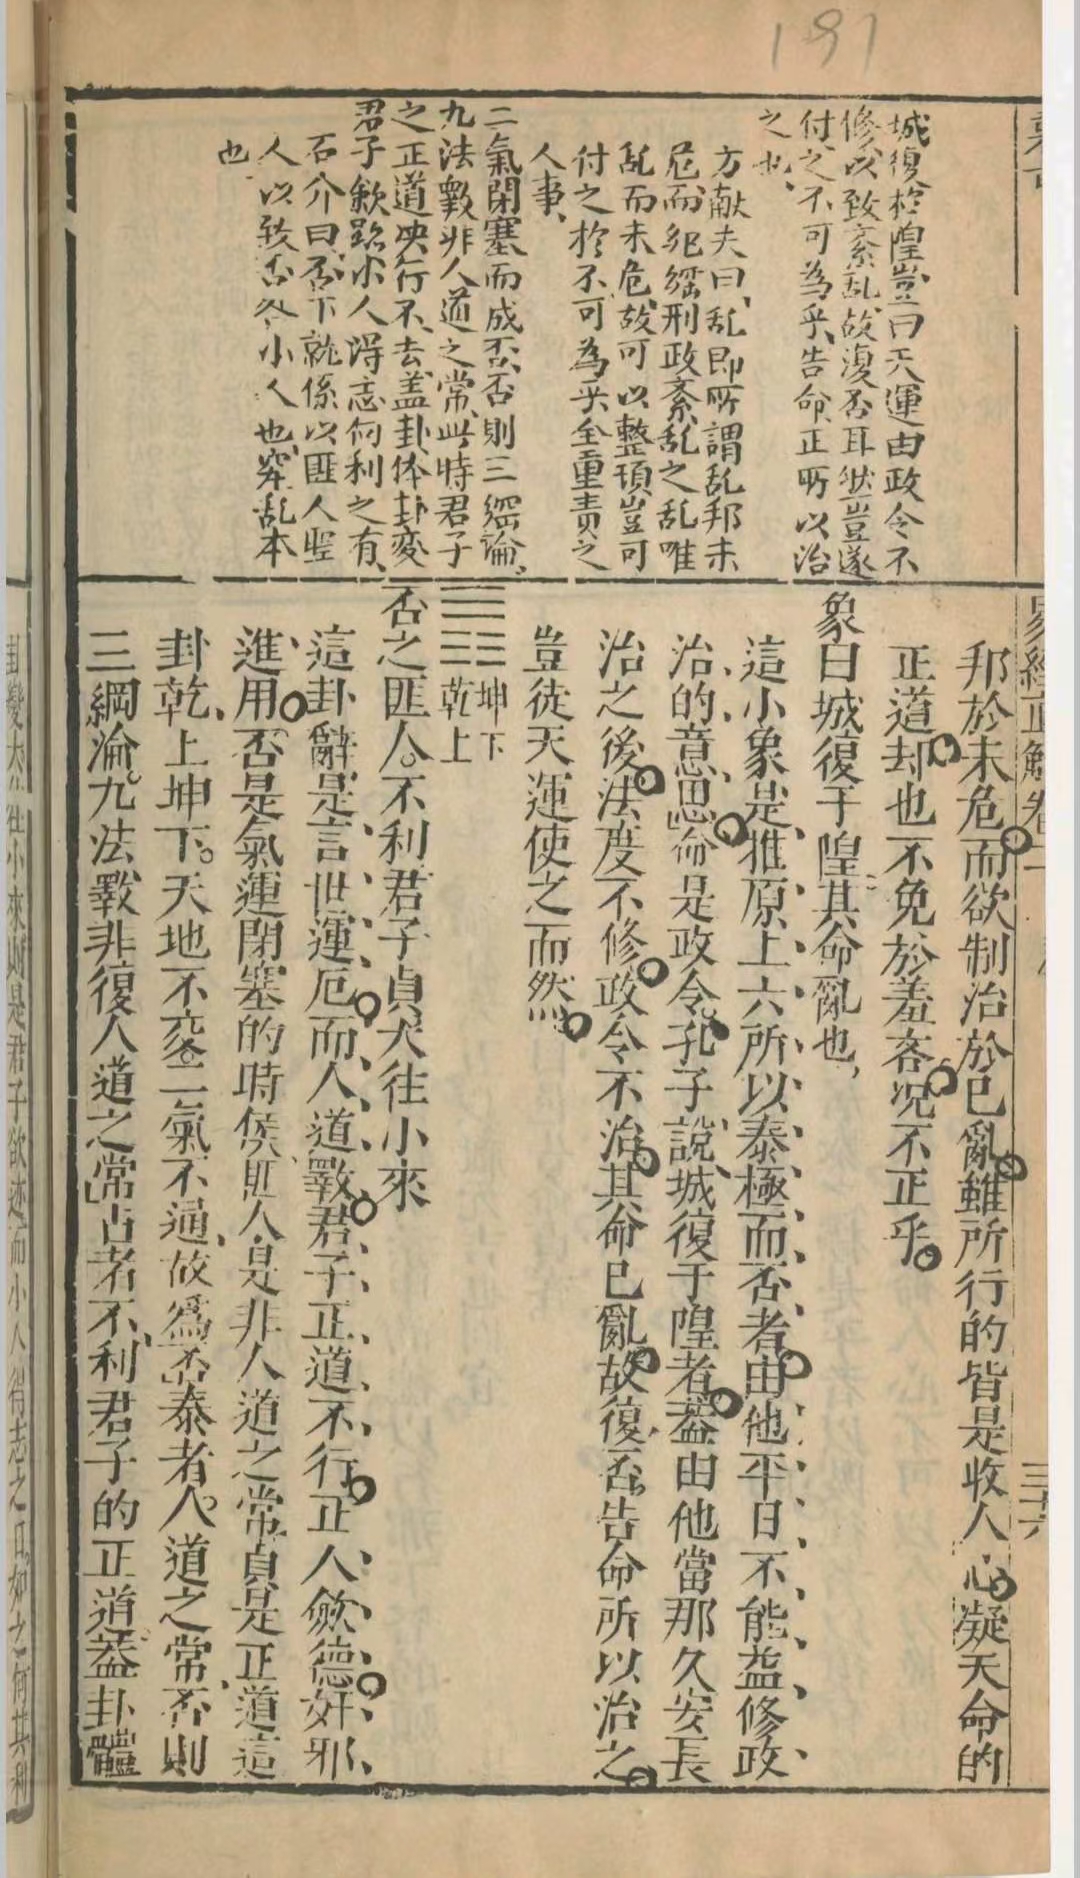 191
城復於隍豈曰天運由政令不
修以致紊乱故復否耳然豈遂
付之不可為乎告命正所以治
之也
方献夫曰乱即所謂乱邦未
危而紀綱刑政紊乱之乱唯
乱而未危故可以整頓豈可
付之於不可為乎全重責之
人事
二氣閉塞而成否否則三綱淪
九法斁非人道之常此時君子
之正道决行不去盖卦体卦变
君子歛跡小人得志何利之有
石介曰否下就係以匪人
人以致否 小人也 乱本
也
易經正解卷二
三十六
邦於未危而欲制治於已亂雖所行的皆是收人心凝天命的
正道却也不免於羞吝况不正乎
象曰城復于隍其命亂也
這小象是推原上六所以泰極而否者由他平日不能益修政
治的意思命是政令孔子說城復于隍者葢由他當那久安長
治之後法度不修政令不治其命已亂故復否告命所以治之
豈徒天運使之而然
坤下
乾上
否之匪人不利君子貞大往小來
這卦辭是言世運厄而人道斁君子正道不行正人歛德奸邪
進用否是氣運閉塞的時侯匪人是非人道之常貞是正道這
卦乾上坤下天地不交二氣不通故爲否泰者人道之常否則
三綱淪九法斁非復人道之常占者不利君子的正道葢卦體
卦變大往小來則是君子欲迹而小人得志之日如之何其利